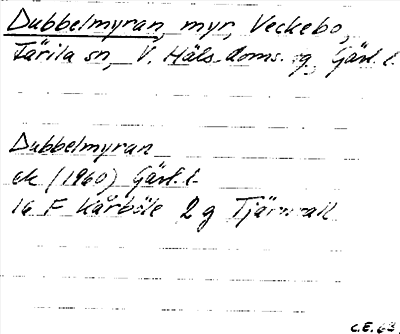 Dubbelmyran, myr, Veckebo,
Färila sn, V. Häls. doms.g, Gävl. l.
Dubbelmyran
ek (1960) Gävl. l.
16 F Kårböle 2 g Tjärnvall
C.E. 63